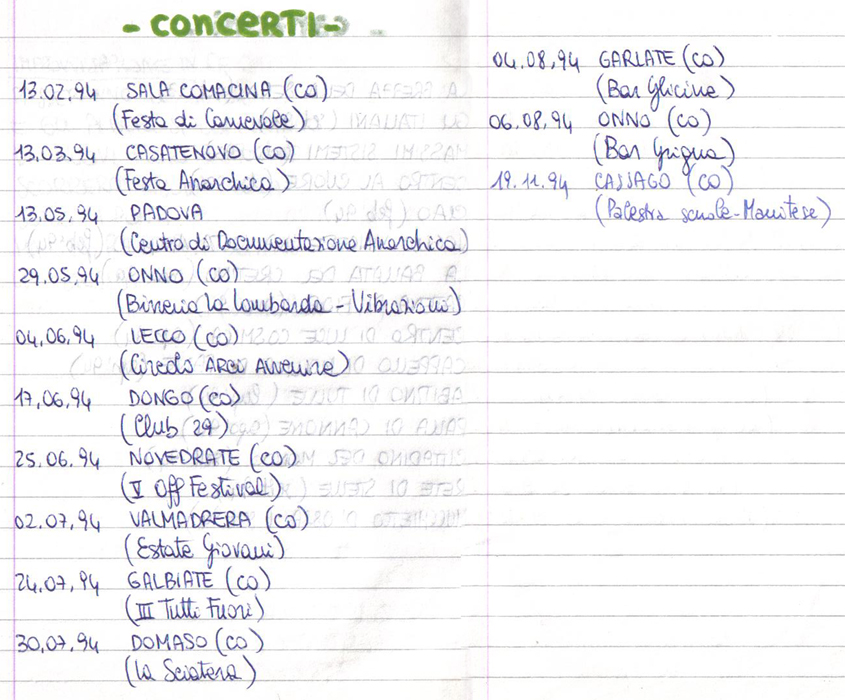 - CONCERTI -
13.02.94 SALA COMACINA (CO)
(Festa di Carnevale)
13.03.94 CASATENOVO (CO)
(Festa Anarchica)
13.05.94 PADOVA
(Centro di Documentazione Anarchica)
29.05.94 ONNO (CO)
(Birreria La Lombarda - Vibrazioni)
04.06.94 LECCO (CO)
(Circolo ARCI Avvenire)
17.06.94 DONGO (CO)
(Club 29)
25.06.94 NOVEDRATE (CO)
(V Off Festival)
02.07.94 VALMADRERA (CO)
(Estate Giovani)
24.07.94 GALBIATE (CO)
(III Tutti Fuori)
30.07.94 DOMASO (CO)
(La Sciatera)
04.08.94 GARLATE (CO)
(Bar Glicine)
06.08.94 ONNO (CO)
(Bar Grigna)
19.11.94 CASSAGO (CO)
(Palestra scuole - Manitese)